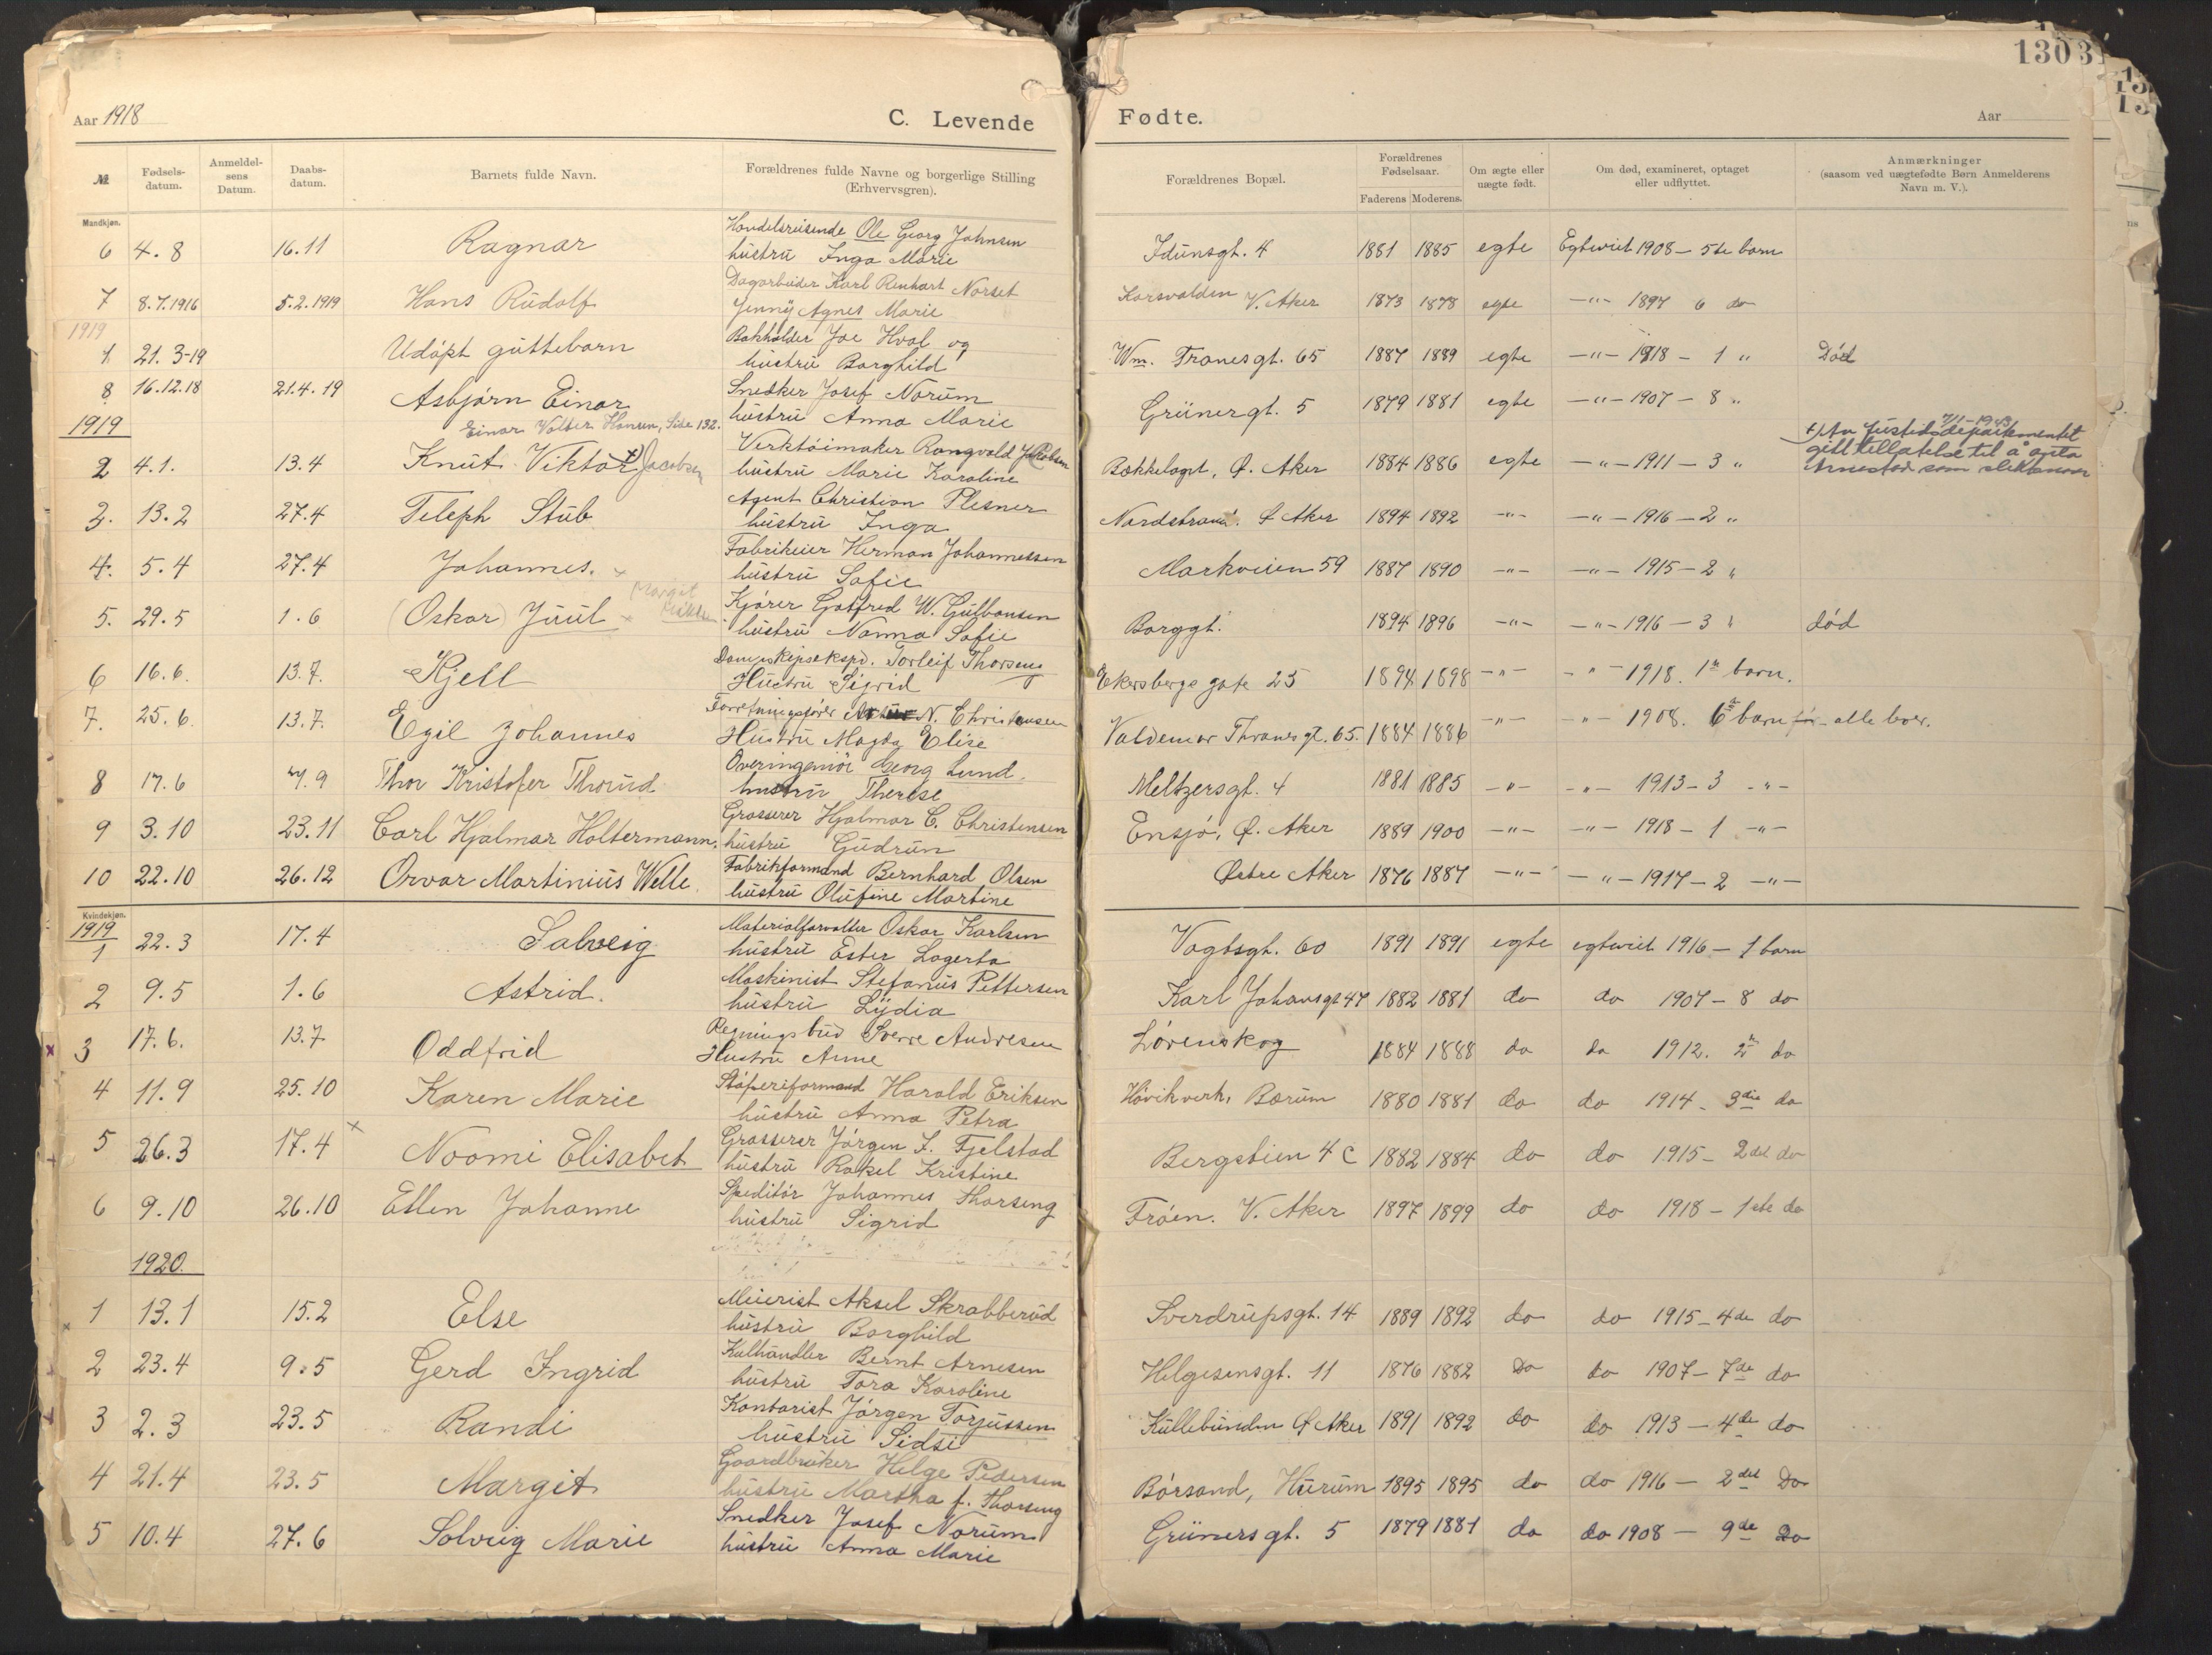 1303
Aar 1918
C. Levende Fødte.
Aar
№
Fødsels-datum.
Anmeldel-sens Datum.
Daabs-datum.
Barnets fulde Navn.
Forældrenes fulde Navne og borgerlige Stilling (Erhvervsgren).
Forældrenes Bopæl.
Forældrenes Fødselsaar.
Faderens Moderens.
Om ægte eller uægte født.
Om død, examineret, optaget eller udflyttet.
Anmærkninger (saasom ved uægtefødte Børn Anmelderens Navn m. V.).
Mandkjøn.
Handelsreisende Ole Georg Johnsen
6 4.8 16.11 Ragnar hustru Inga Marie Idunsgt. 4 1881 1885 egte Egteviet 1908 – 5te barn
Dagarbeider Karl Renhart Norset
7 8.7.1916 5.2.1919 Hans Rudolf Jenny Agnes Marie Korsvolden V. Aker 1873 1878 egte –"– 1897 6 do
1919
Bokholder Joe Hval og
1 21.3-19 Udøpt guttebarn hustru Borghild Wm. Tranesgt. 65 1887 1889 egte –"– 1918 – 1 " Død
Snedker Josef Norum
8 16.12.18 21.4.19 Asbjørn Einar hustru Anna Marie Grünergt. 5 1879 1881 egte –"– 1907 – 8 "
1919
Einar Volter Hansen, Side 132.
Verktøimaker Rangvald Jakobsen
2 4.1. 13.4 Knut Viktor + Jacobsen hustru Marie Karoline Bækkelaget, Ø. Aker 1884 1886 egte –"– 1911 – 3 "
7/1-1943
+) Av Justisdepartementet
gitt tillatelse til å anta
Arnestad som slektsnavn
Agent Christian Plesner
3. 13.2 27.4 Teleph Stub hustru Inga Nordstrand. Ø Aker 1894 1892 –"– –"– 1916 – 2 "
Fabrikeier Herman Johannessen
4. 5.4 27.4 Johannes. hustru Sofie Markveien 59 1887 1890 –"– –"– 1915 – 2 "
Margit
Kjører Gotfred W. Gulbansen
5. 29.5 1.6 (Oskar) Juul hustru Nanna Sofie Borggt. 1894 1896 –"– –"– 1916 – 3 " død
Dampskipsekspd. Torleif Thorseng
6 16.6. 13.7. Kjell Hustru Sigrid Ekersbergs gate 25 1894 1898 –"– –"– 1918. 1ste barn.
Forretningsfører N. Christensen
7. 25.6. 13.7. Egil Johannes Hustru Magda Elise Valdemar Thranes gt. 65. 1884 1886 –"– –"– 1908. 6te barn før – alle lever.
Overingeniör Georg Lund.
8 17.6 7.9 Thor Kristofer Thorud hustru Therese Meltzersgt. 4 1881 1885 –"– –"– 1913 – 3 –"–
Grosserer Hjalmar C. Christensen
9 3.10 23.11 Carl Hjalmar Holtermann. hustru Gudrun Ensjø, Ø. Aker 1889 1900 –"– –"– 1918 – 1 –"–
Fabrikformand Bernhard Olsen
10 22.10 26.12 Orvar Martinius Welle. hustru Olufine Martine Østre Aker 1876 1887 –"– –"– 1917 – 2 –"–
Kvindekjøn.
1919
Materialforvalter Oskar Karlsen
1 22.3 17.4 Solveig hustru Ester Lagerta Vogtsgt. 60 1891 1891 egte egteviet 1916 – 1 barn
Maskinist Stefanus Pettersen
2 9.5 1.6 Astrid. hustru Lydia Karl Johansgt 47 1882 1881 do do 1907 – 8 do
Regningsbud Sverre Andresen
x 3 17.6. 13.7 Oddfrid Hustru Anne Lørenskog 1884 1888 do do 1912. 2n do
Støperiformand Harald Eriksen
4 11.9 25.10 Karen Marie hustru Anna Petra Høvikverk, Bærum 1880 1881 do do 1914 – 3die do
Grosserer Jørgen F. Fjelstad
5 26.3 17.4 x Noomi Elisabet hustru Rakel Kristine Bergstien 4 c 1882 1884 do do 1915 – 2det do
Speditør Johannes Thorseng
6 9.10 26.10 Ellen Johanne hustru Sigrid Frøen. V. Aker 1897 1899 do do 1918 – 1ste do
1920.
Meierist Aksel Skrabberud
x 1 13.1 15.2 Else hustru Borghild Sverdrupsgt. 14 1889 1892 do do 1915 – 4de do
Kulhandler Bernt Arnesen
2 23.4 9.5 Gerd Ingrid hustru Tora Karoline Helgesensgt. 11 1876 1882 Do do 1907 – 7de do
Kontorist Jørgen Torjussen
3 2.3 23.5 Randi hustru Sidsi Kullebunden Ø Aker 1891 1892 do do 1913 – 4de do
Gaardbruker Helge Pedersen
4 21.4 23.5 Margit hustru Martha f. Thorseng Børsand, Hurum 1895 1895 do do 1916 – 2det Do
Snedker Josef Norum
5 10.4 27.6 Solveig Marie hustru Anna Marie Grünersgt. 5 1879 1881 do do 1908 – 9de Do